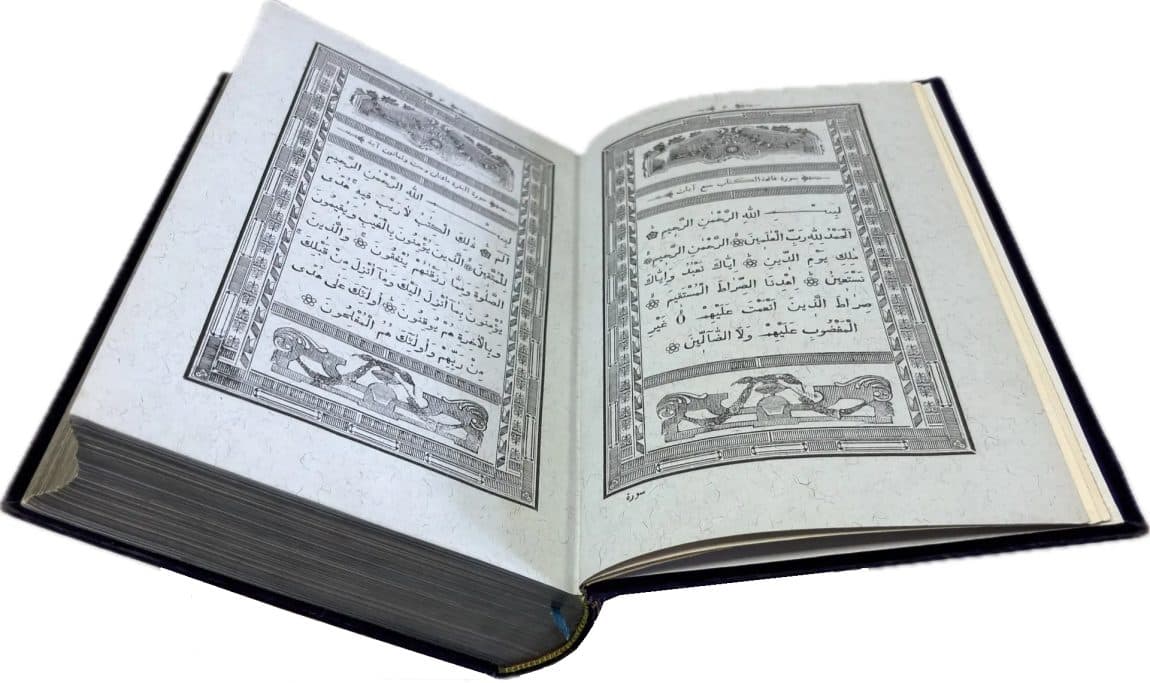 سورة فاتحة الكتاب سبع آيات
بِسْمِ اللّٰهِ الرَّحْمٰنِ الرَّحِيمِ
اَلْحَمْدُ لِلّٰهِ رَبِّ الْعٰلَمِينَ الرَّحْمٰنِ الرَّحِيمِ
مٰلِكِ يَوْمِ الدِّينِ اِيَّاكَ نَعْبُدُ وَاِيَّاكَ
نَسْتَعِينُ اِهْدِنَا الصِّرَاطَ الْمُسْتَقِيمَ
صِرَاطَ الَّذِينَ اَنْعَمْتَ عَلَيْهِمْ غَيْرِ
الْمَغْضُوبِ عَلَيْهِمْ وَلَا الضَّآلِّينَ
سورة
سورة البقرة مائتان وست وثمانون آية
بِسْمِ اللّٰهِ الرَّحْمٰنِ الرَّحِيمِ
الٓمٓ ذٰلِكَ الْكِتٰبُ لَا رَيْبَ فِيهِ هُدًى
لِلْمُتَّقِينَ الَّذِينَ يُؤْمِنُونَ بِالْغَيْبِ وَيُقِيمُونَ
الصَّلٰوةَ وَمِمَّا رَزَقْنٰهُمْ يُنْفِقُونَ وَالَّذِينَ
يُؤْمِنُونَ بِمَا اُنْزِلَ اِلَيْكَ وَمَا اُنْزِلَ مِنْ قَبْلِكَ
وَبِالْاٰخِرَةِ هُمْ يُوقِنُونَ اُولٰئِكَ عَلٰى هُدًى
مِنْ رَبِّهِمْ وَاُولٰئِكَ هُمُ الْمُفْلِحُونَ